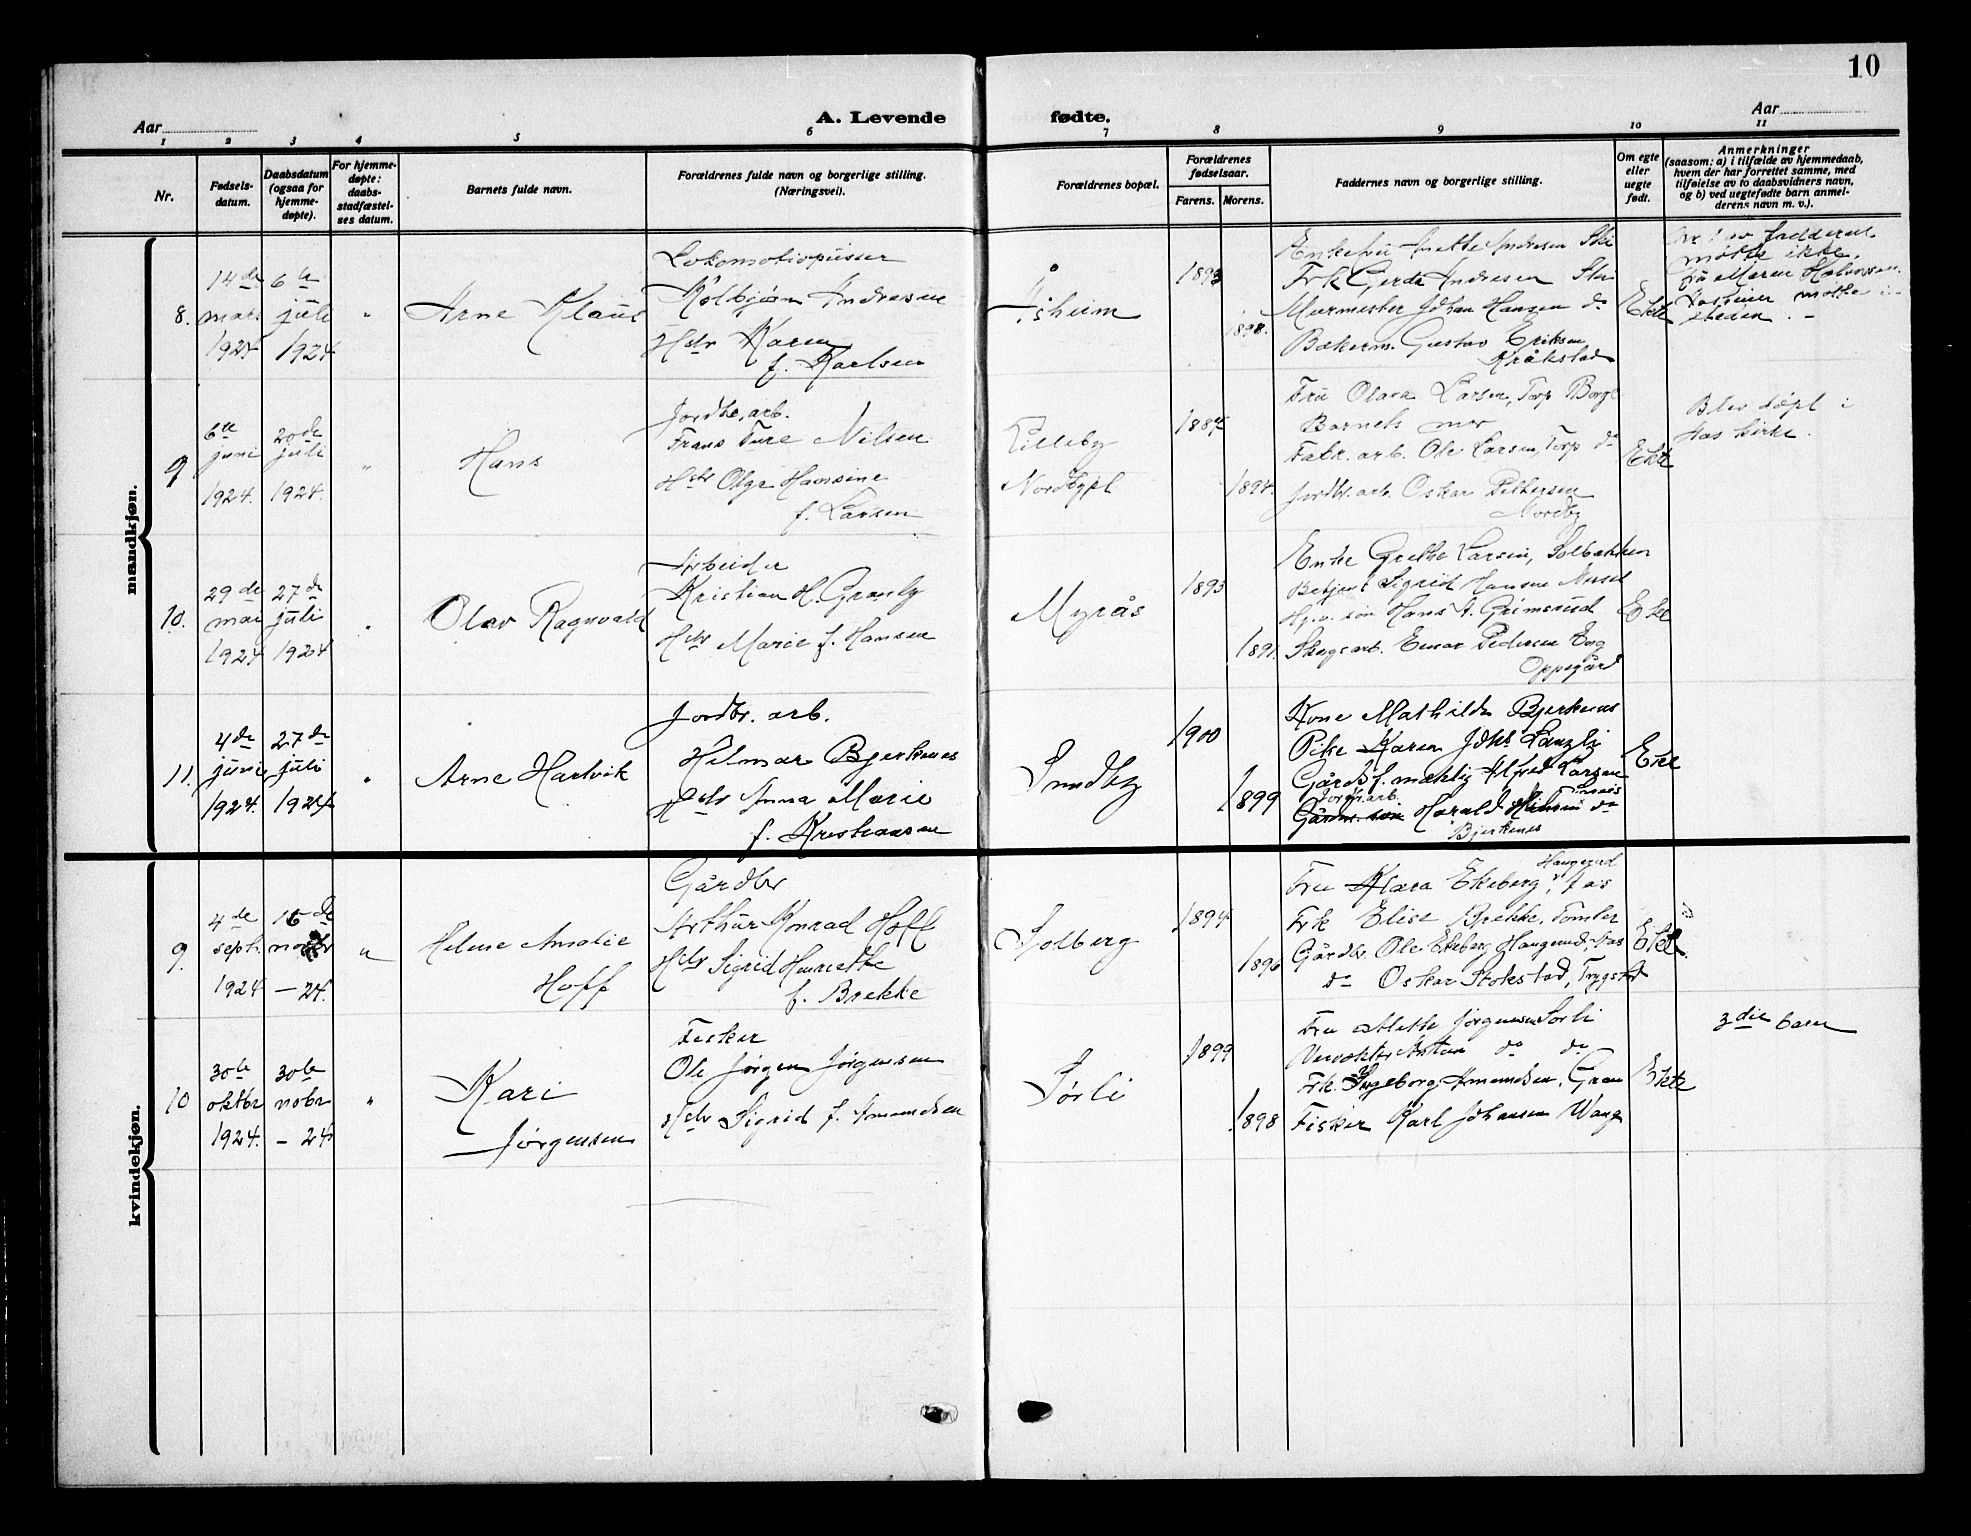 10
Aar
A. Levende
fødte.
Aar
1 2 3 4 5 6 7 8 9 10 11
Nr.
Fødsels-
datum.
Daabsdatum
(ogsaa for
hjemme-
døpte).
For hjemme-
døpte:
daabs-
stadfæstel-
ses datum.
Barnets fulde navn.
Forældrenes fulde navn og borgerlige stilling.
(Næringsvei).
Forældrenes bopæl.
Forældrenes
fødselsaar.
Farens. Morens.
Faddernes navn og borgerlige stilling.
Om egte
eller
uegte
født.
Anmerkninger
(saasom: a) i tilfælde av hjemmedaab,
hvem der har forrettet samme, med
tilføielse av to daabsvidners navn,
og b) ved uegtefødte barn anmel-
derens navn m. v.).
mandkjøn.
8.
14de
mars
1924
6te
juli
1924
"
Arne Klaus
Lokomotivpusser
Kolbjørn Andresen
Hstr Karen
f. Karlsen
Åsheim
1893
1898.
Enkefru Anette Andresen Ski
Frk Gerda Andresen Ski
Murmester Johan Hansen do
Bakerm. Gustav Eriksen
Kråkstad
Ekte
møtte ikke.
Fru Maren Halvorsen
møtte i
steden. -
9
6te
juni
1924.
20de
juli
1924.
"
Hans
Jordbr. arb.
Frans Ture Nilsen
Hstr Olga Hansine
f. Larsen
Lilleby
Nordbypl
1887
1894.
Fru Olava Larsen, Torp Borge
Barnets mor
Fabr. arb. Ole Larsen, Torp do
Jordbr. arb. Oskar Pettersen
Nordby
Ekte
Blev døpt i
Aas kirke.
10.
29de
mai
1924
27de
juli
1924
"
Olav Ragnvald
Arbeider
Kristian H. Granly
Hstr Marie f. Hansen
Myrås
1893
1891.
Enke Grethe Larsen, Solbakken
Betjent Sigrid Hansen
Hans A. Grimsrud
Skogsarb. Einar Pedersen
Oppegård
Ekte
11.
4de
juni
1924.
27de
juli
1924
"
Arne Hartvik
Jordbr. arb.
Hilmar Bjerkenes
Hstr Anna Marie
f. Kristiansen
Sundby
1900
1899
Kone Mathilde Bjerkenes
Pike Karen Johs
Alfred Larsen
Jordbr. arb.
Harald do
Bjerkenes
Ekte
kvindekjøn.
9.
4de
septr.
1924
16de
novbr
- 24.
"
Helene Amalie
Hoff
Gårdbr
Arthur Konrad Hoff
Hstr Sigrid Henriette
f. Brekke
Solberg
1894
1896
Haugerud
Fru Klara Ekeberg, Aas
Frk Elise Brekke, Tomter
Gårdbr. Ole Ekeberg Haugerud, Aas
do Oskar Stokstad, Trygstad
Ekte
10
30te
oktbr
1924.
30te
nobr
- 24
"
Kari
Jørgensen
Fisker
Ole Jørgen Jørgensen
Hstr Sigrid f. Amundsen
Sørli
1899
1898
Fru Mette Jørgensen Sørli
Anton do do
Frk. Ingeborg Amundsen, Gran
Fisker Karl Johansen Wang
Ekte
3die barn